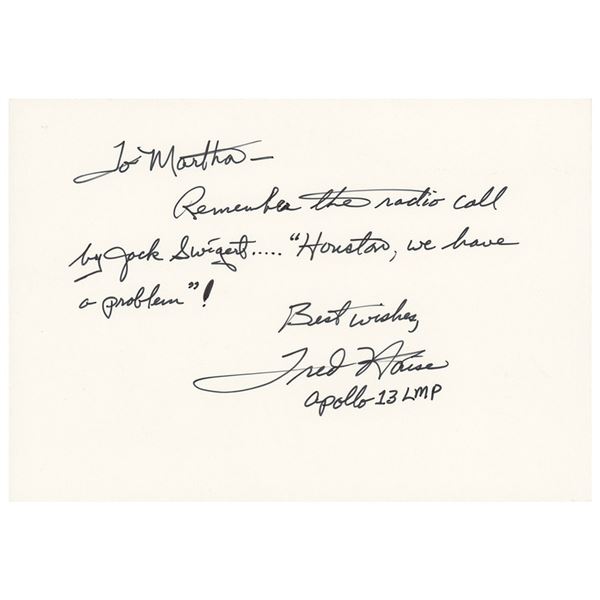 To Martha —
Remember the radio call
by Jack Swigert ..... "Houston, we have
a problem"!
Best wishes,
Fred Haise
Apollo 13 LMP